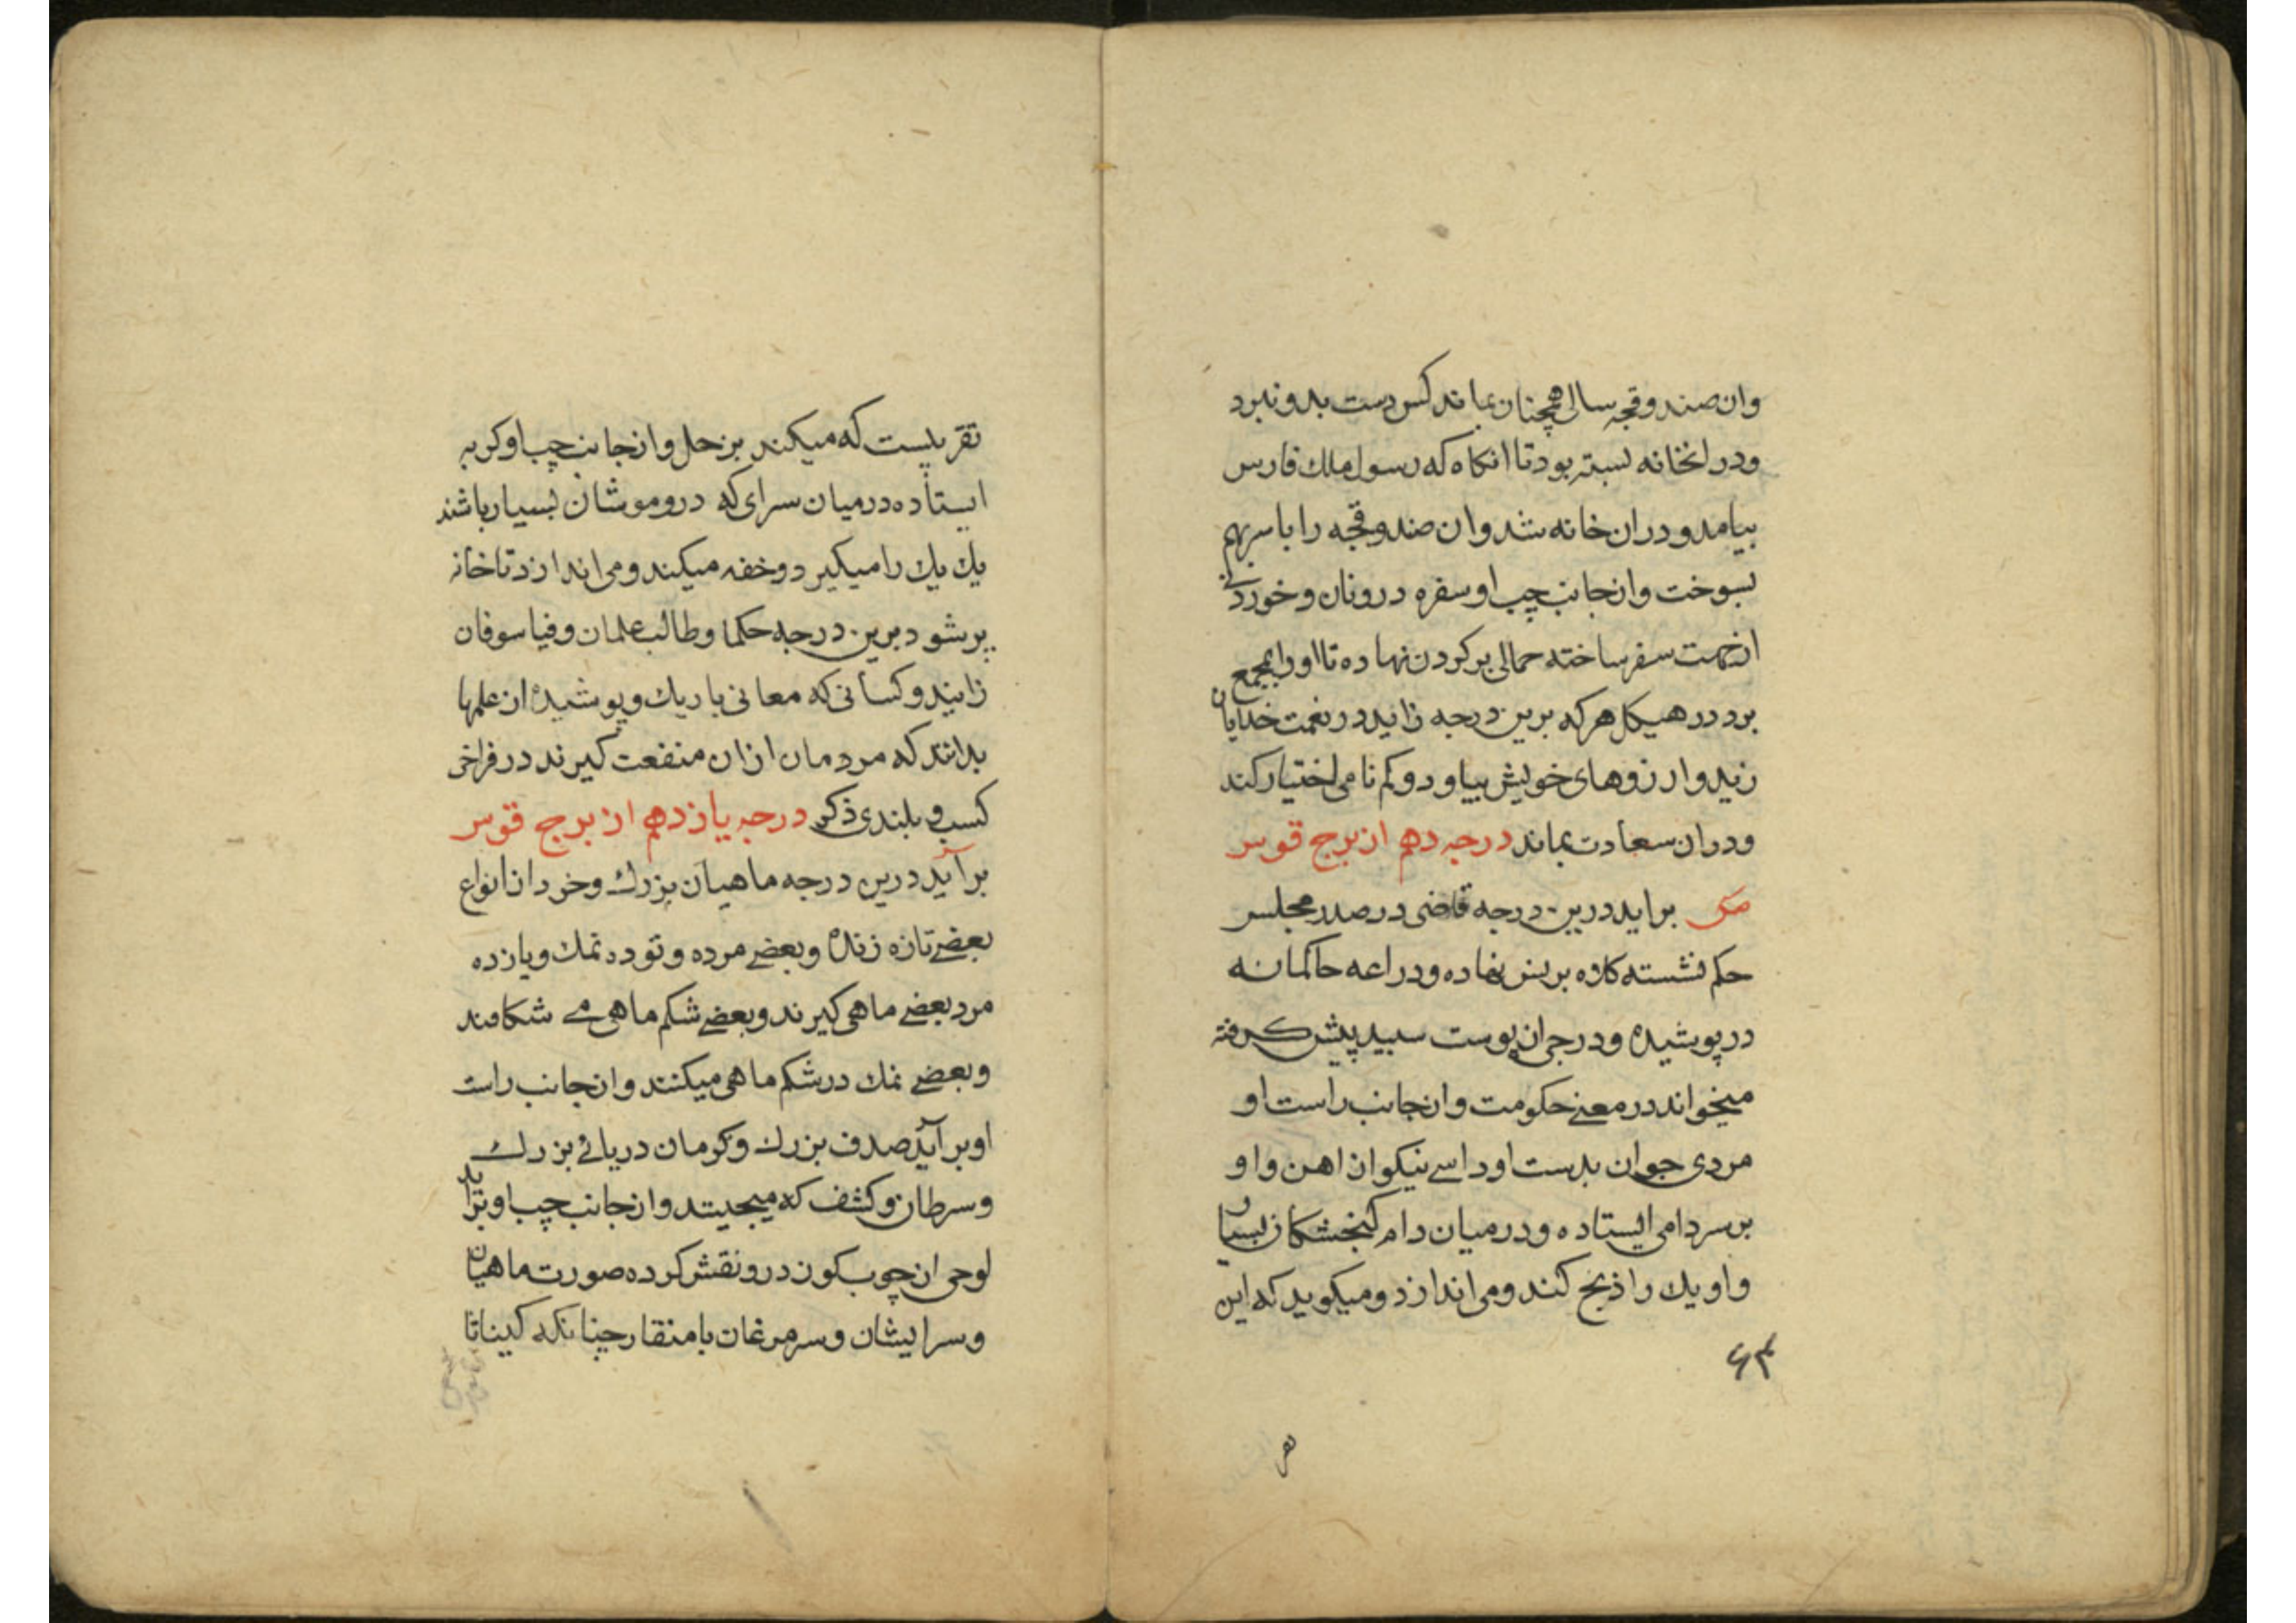 وان صندوقچه سالی همچنان بماند کس دست بدو نبرد
ودر انخانه بسته بود تا انکاه که رسول ملك فارس
بیامد ودران خانه شد وان صندوقچه را با سر بهم
بسوخت وازجانب چپ او سفره درو نان و خوردنی
ازجهت سفر ساخته حمالی برکردن نهاده تا اورا بمجمع
برد در هیکل هرکه برین درجه زاید در نعمت خدایان
زید وارزوهای خویش بیاود وکم نامی اختیار کند
ودران سعادت بماند درجه دهم از برج قوس
براید درین درجه قاضی در صدر مجلس
حکم نشسته کلاه بر سر نهاده ودراعه حاکمانه
در پوشیده ودرجی از پوست سبید پیش کرفته
میخواند در معنے حکومت وازجانب راست او
مردی جوان بدست او داسے نیکو از اهن واو
بر سر دامی ایستاده ودر میان دام کنجشکان بسیار
واو یك را ذبح کند ومی اندازد ومیکوید که این
۶۳
تقر
تقریبست که میکند بزحل وازجانب چپ او کربه
ایستاده درمیان سرای که درو موشان بسیار باشند
یك یك را میکیرد وخفه میکند ومی اندازد تا خانه
پر شود برین درجه حکما وطالب علمان وفیلسوفان
زایند وکسانی که معانی باریك وپوشیده از علمها
بدانند که مردمان ازان منفعت کیرند در فراخی
کسب وبلندی ذکر درجه یازدهم از برج قوس
برآید درین درجه ماهیان بزرك وخرد از انواع
بعضے تازه زنده وبعضے مرده وتوده نمك ویازده
مرد بعضے ماهی کیرند وبعضے شکم ماهی مے شکافند
وبعضے نمك در شکم ماهی میکنند وازجانب راست
او برآید صدف بزرك وکرمان دریائے بزرك
وسرطان وکشف که میجیبند وازجانب چپ او براید
لوحی از چوب کوز درو نقش کرده صورت ماهیان
وسر ایشان وسر مرغان با منقار چنانکه کیناتا